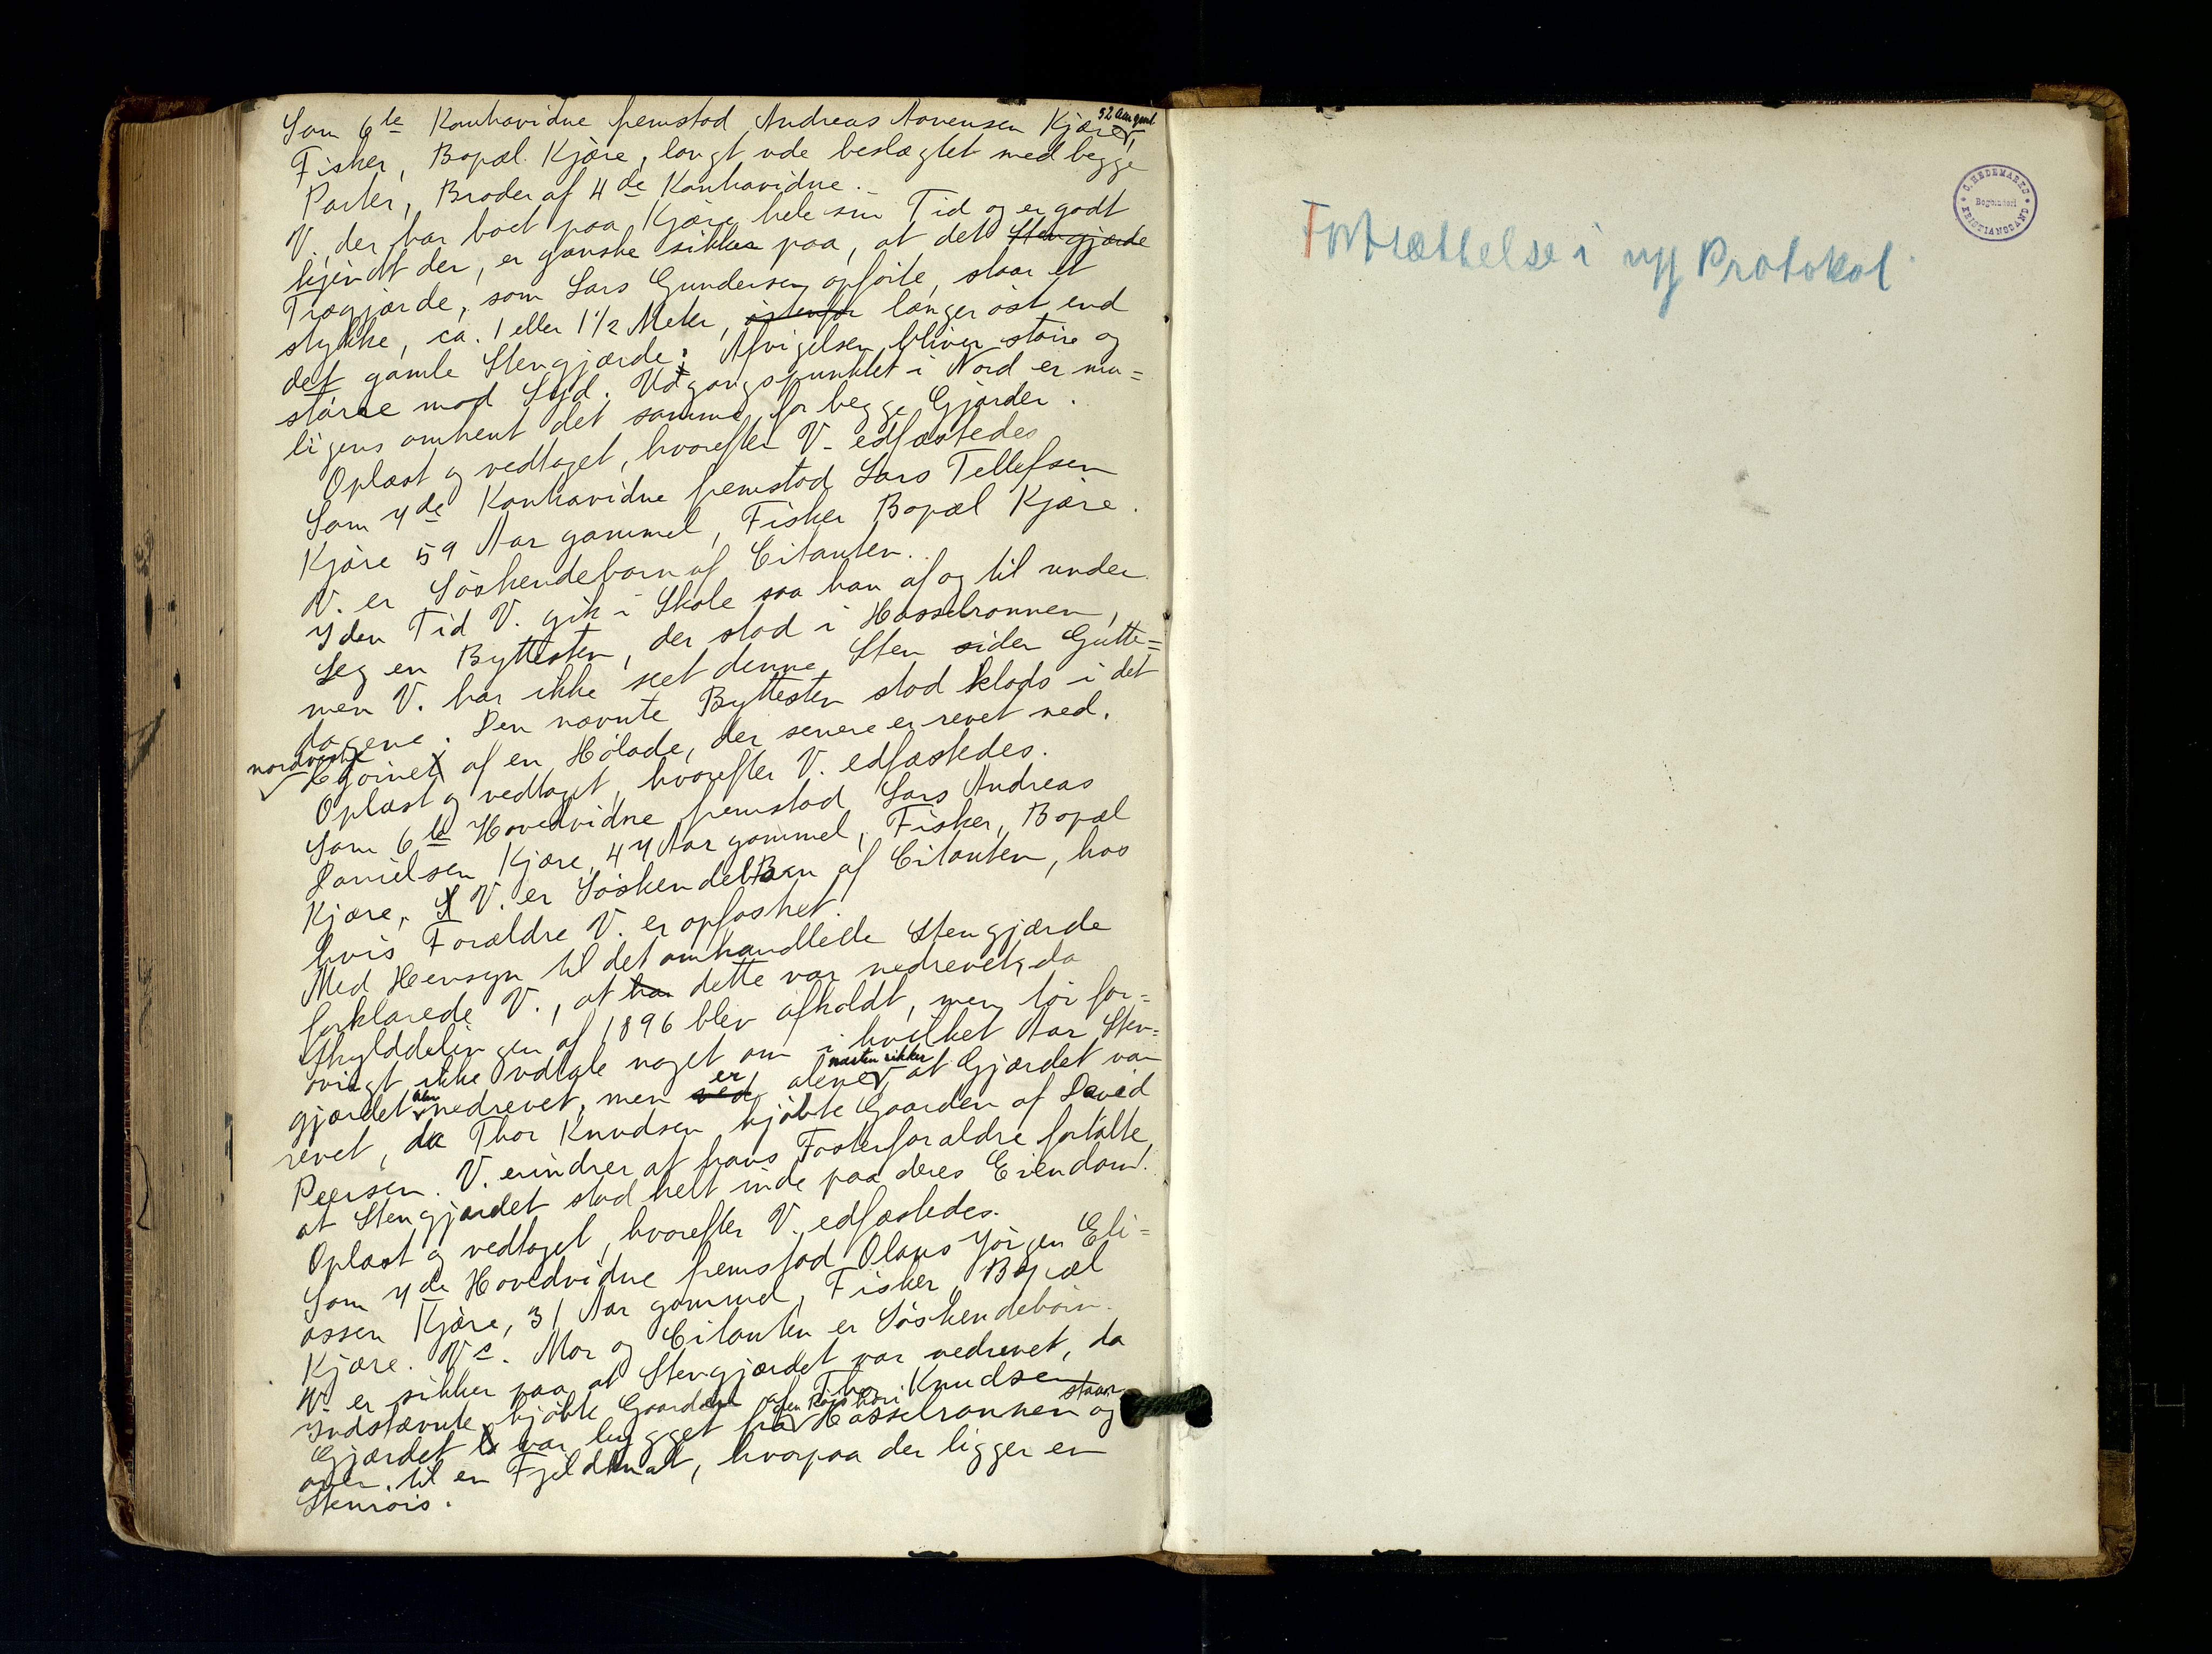 Som 6te Kontravidne fremstod Andreas Aavensen Kjære, 52 Aar gml.
Fisker, Bopæl Kjære, langt ude beslægtet med begge
Parter, Broder af 4de Kontravidne.
V, der har boet paa Kjære hele sin Tid og er godt
kjendt der, er ganske sikker paa, at det Stengjærde
Trægjærde, som Lars Gundersen opførte, staar et
stykke, ca. 1 eller 1 1/2 Meter, østenfor længer øst end
det gamle Stengjærde; Afvigelsen bliver større og
større mod Syd. Udgangspunktet i Nord er nu=
ligens omtrent det samme for begge Gjærder.
Oplæst og vedtaget, hvorefter V. edfæstedes
Som 7de Kontravidne fremstod Lars Tellefsen
Kjære 59 Aar gammel, Fisker Bopæl Kjære.
V. er Søskendebarn af Citanten.
I den Tid V. gik i Skole saa han af og til under
Leg en Byttesten, der stod i Hasselrønnen,
men V. har ikke seet denne Sten siden Gutte=
dagene. Den nævnte Byttesten stod klods i det
nordvestre
Hjørnet af en Hølade, der senere er revet ned.
Oplæst og vedtaget, hvorefter V. edfæstedes.
Som 6te Hovedvidne fremstod Lars Andreas
Danielsen Kjære, 47 Aar gammel, Fisker, Bopæl
Kjære, V. er Søskendebarn af Citanten, hos
hvis Forældre V. er opfostret.
Med Hensyn til det omhandlede Stengjærde
forklarede V., at han dette var nedrevet, da
Skylddelingen af 1896 blev afholdt, men tør for=
øvrigt ikke udtale noget om i hvilket Aar Sten=
gjærdet blev nedrevet, men ved er alene næsten sikker at Gjærdet var
revet, da Thor Knudsen kjøbte Gaarden af David
Peersen. V. erindrer at hans Fosterforældre fortalte,
at Stengjærdet stod helt inde paa deres Eiendom.
Oplæst og vedtaget, hvorefter V. edfæstedes.
Som 7de Hovedvidne fremstod Olaus Jörgen Eli=
assen Kjære, 31 Aar gammel, Fisker Bopæl
Kjære. Vs. Mor og Citanten er Søskendebørn.
V. er sikker paa at Stengjærdet var nedrevet, da
Indstævnte kjøbte Gaarden af Thor Knudsen
Gjærdet var bygget fra Hasselrønnen og
over til en Fjeldknat, hvorpaa der ligger en
Stenrøis.
Fortsættelse i ny Protokol
C. HEDEMARKS
Bogbinderi
KRISTIANSSAND